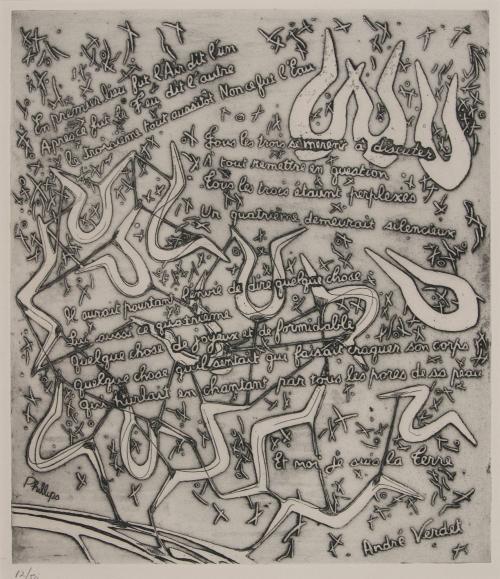 En premier lieu fut l'Air dit l'un
Après ce fut le Feu dit l'autre
Le troisième tout aussitôt Non ce fut l'Eau
Tous les trois se mirent à discuter
A tout remettre en question
Tous les trois étaient perplexes
Un quatrième demeurait silencieux
Il aurait pourtant l'envie de dire quelque chose
Lui aussi ce quatrième
Quelque chose de joyeux et de formidable
Quelque chose qu'il sentait qui faisait craquer son corps
Qui hurlait en chantant par tous les pores de sa peau
Et moi je suis la Terre
André Verdet
Phillips